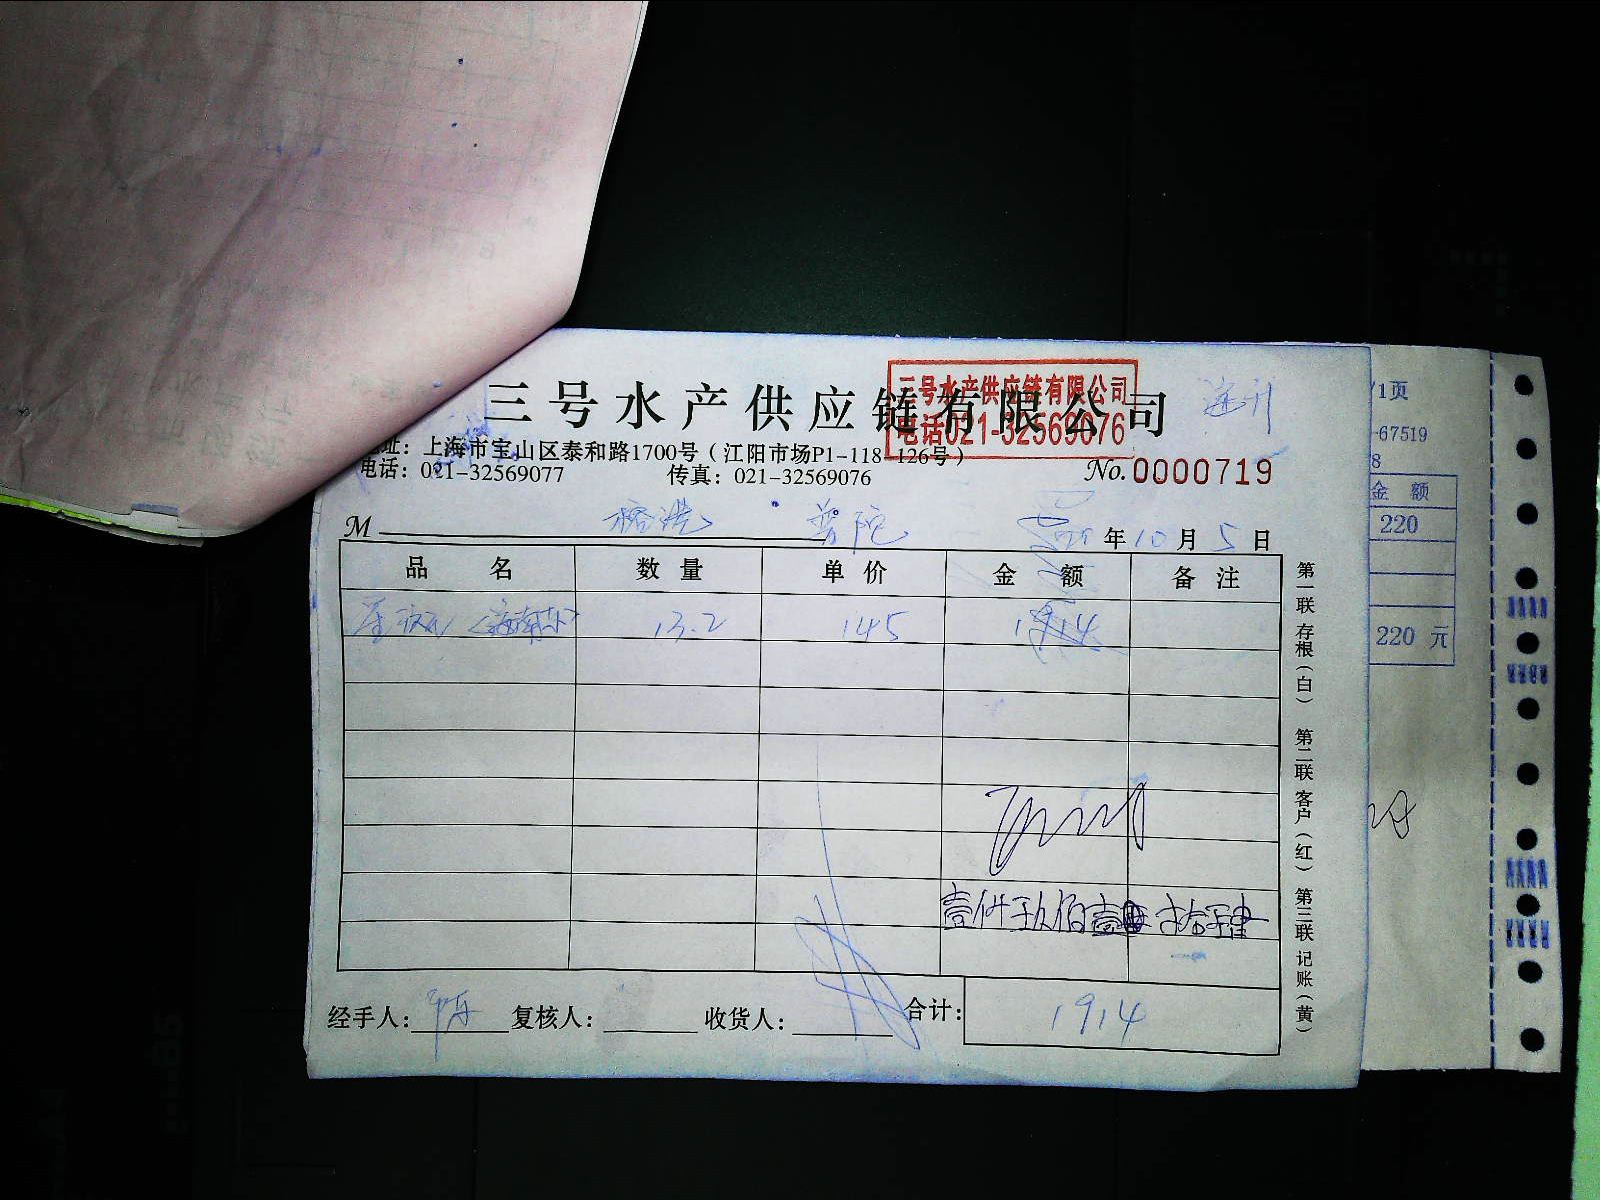 三号水产供应链有限公司
三号水产供应链有限公司
电话021-32569076
址：上海市宝山区泰和路1700号（江阳市场P1-118-126号）
电话：021-32569077 传真：021-32569076
No.0000719
M 普陀 年10月5日
品名 数量 单价 金额 备注
13.2 145 1914
壹仟玖佰壹拾肆
经手人： 复核人： 收货人： 合计：1914
第一联 存根（白） 第二联 客户（红） 第三联 记账（黄）
/1页
-67519
8
金额
220
220 元